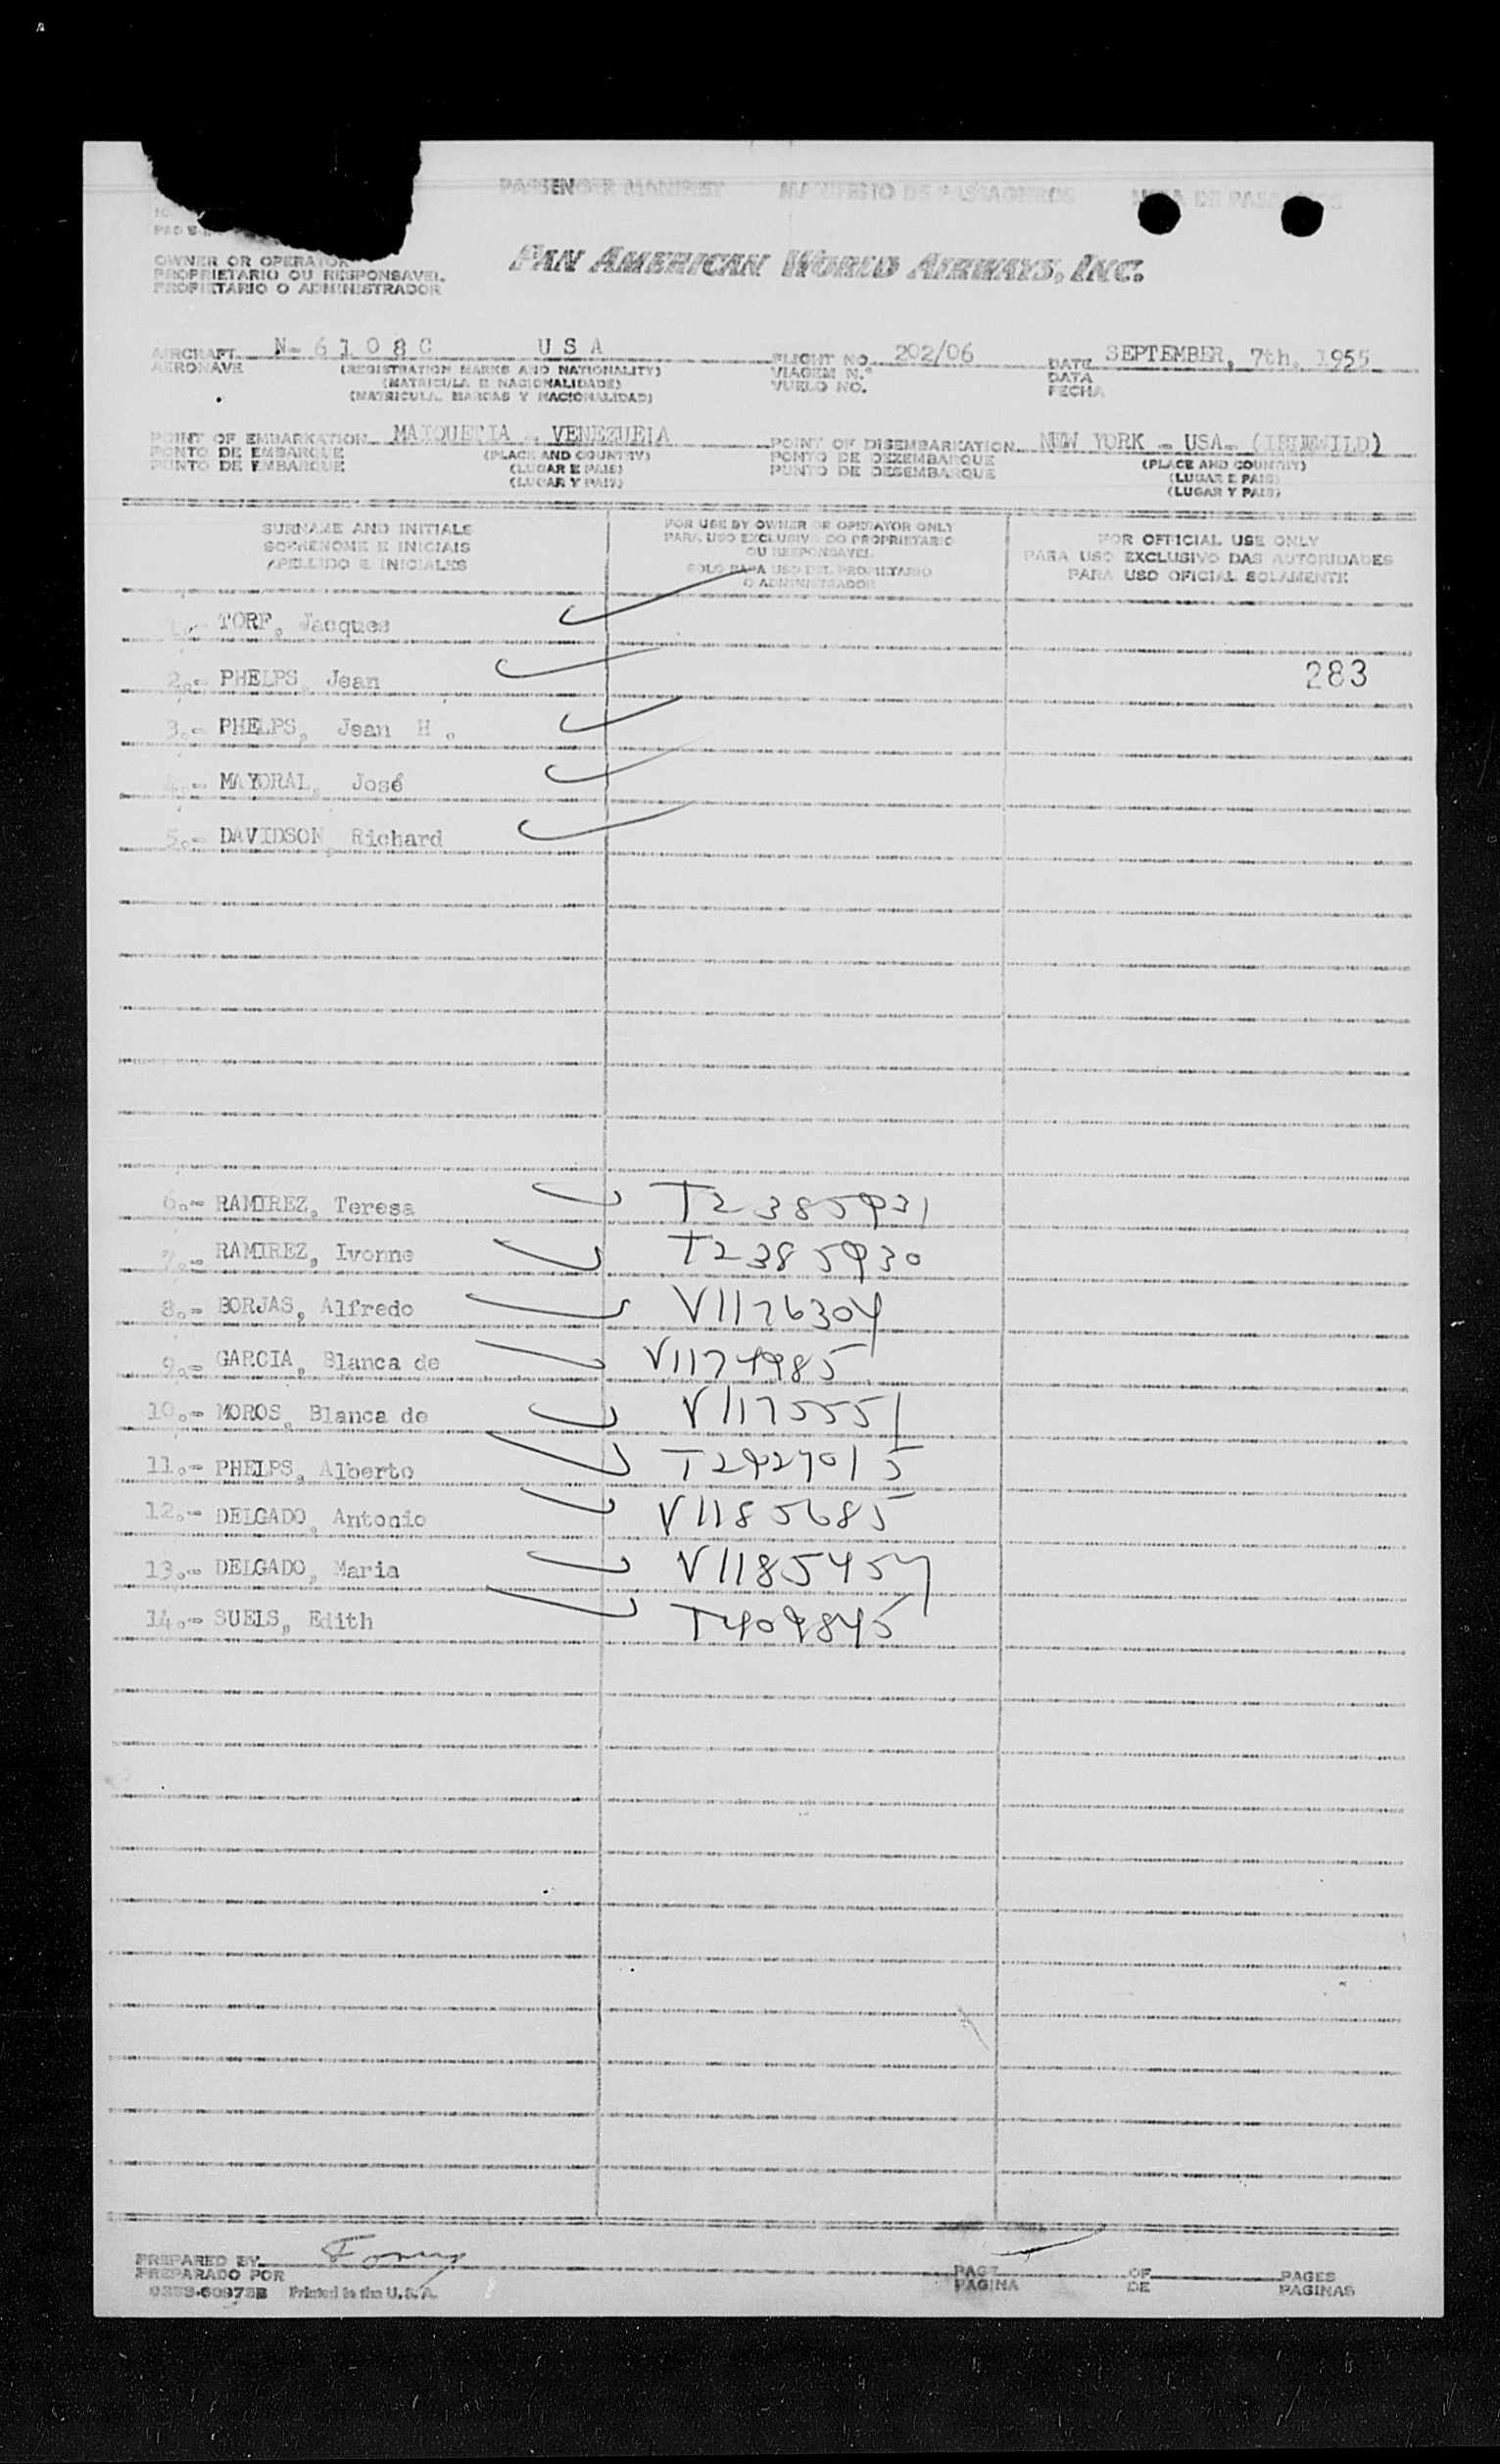 PASSENGER MANIFEST MANIFESTO DE PASSAGEIROS LISTA DE PASAJEROS
OWNER OR OPERATOR
PROPRIETARIO OU RESPONSAVEL
PROPIETARIO O ADMINISTRADOR
PAN AMERICAN WORLD AIRWAYS, INC.
AIRCRAFT N-6108C USA FLIGHT NO. 202/06 DATE SEPTEMBER, 7th, 1955
AERONAVE (REGISTRATION MARKS AND NATIONALITY) VIAGEM N.º DATA
(MATRICULA E NACIONALIDADE) VUELO NO. FECHA
(MATRICULA, MARCAS Y NACIONALIDAD)
POINT OF EMBARKATION MAIQUETIA - VENEZUELA POINT OF DISEMBARKATION NEW YORK - USA- (IDLEWILD)
PONTO DE EMBARQUE (PLACE AND COUNTRY) PONTO DE DEZEMBARQUE (PLACE AND COUNTRY)
PUNTO DE EMBARQUE (LUGAR E PAIS) PUNTO DE DESEMBARQUE (LUGAR E PAIS)
(LUGAR Y PAIS) (LUGAR Y PAIS)
SURNAME AND INITIALS
SOBRENOME E INICIAIS
APELLIDO E INICIALES
FOR USE BY OWNER OR OPERATOR ONLY
PARA USO EXCLUSIVO DO PROPRIETARIO
OU RESPONSAVEL
SOLO PARA USO DEL PROPIETARIO
O ADMINISTRADOR
FOR OFFICIAL USE ONLY
PARA USO EXCLUSIVO DAS AUTORIDADES
PARA USO OFICIAL SOLAMENTE
1.- TORF, Jacques
2.- PHELPS Jean 283
3.- PHELPS, Jean H.
4.- MAYORAL, José
5.- DAVIDSON, Richard
6.- RAMIREZ, Teresa T2385931
7.- RAMIREZ, Ivonne T2385930
8.- BORJAS, Alfredo V1176304
9.- GARCIA, Blanca de V1174985
10.- MOROS, Blanca de V1175551
11.- PHELPS, Alberto T2927015
12.- DELGADO, Antonio V1185685
13.- DELGADO, Maria V1185454
14.- SUEIS, Edith T409845
PREPARED BY PAGE OF PAGES
PREPARADO POR PAGINA DE PAGINAS
Printed in the U.S.A.